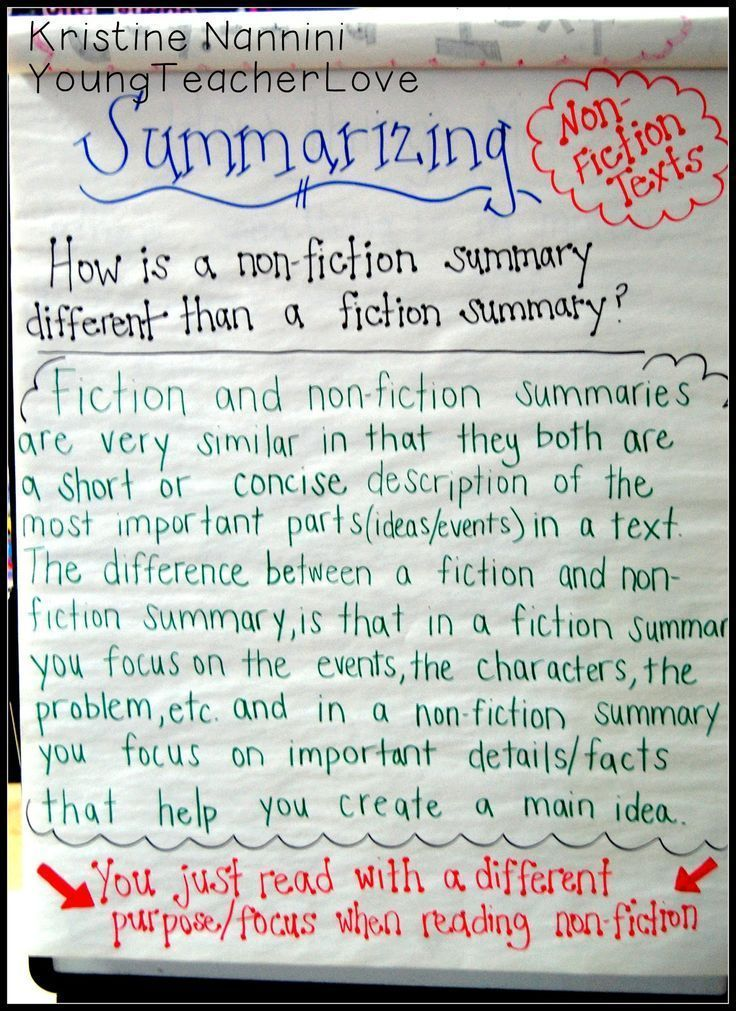 Kristine Nannini
YoungTeacherLove
Summarizing
Non-
Fiction
Texts
How is a non-fiction summary
different than a fiction summary?
Fiction and non-fiction summaries
are very similar in that they both are
a short or concise description of the
most important parts(ideas/events) in a text.
The difference between a fiction and non-
fiction summary, is that in a fiction summar
you focus on the events, the characters, the
problem, etc. and in a non-fiction summary
you focus on important details/facts
that help you create a main idea.
You just read with a different
purpose/focus when reading non-fiction